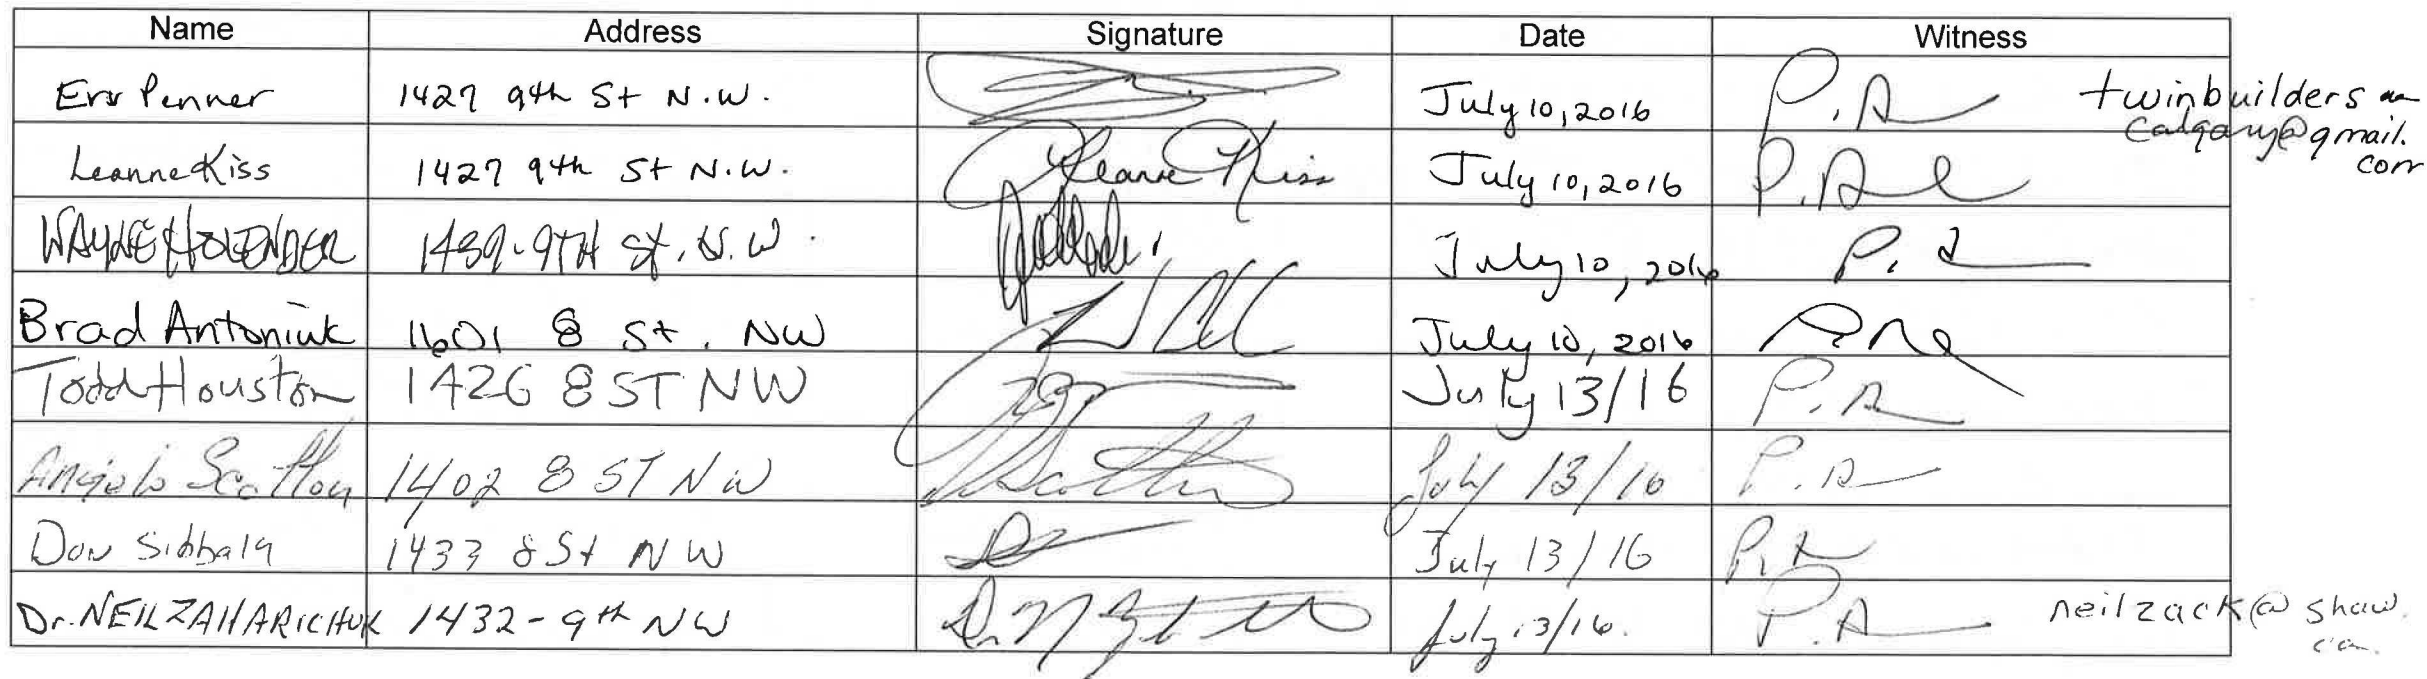 Name Address Signature Date Witness
Erv Penner 1427 9th St N.W. July 10, 2016 P. A twinbuilders
calgary@gmail.
com
Leanne Kiss 1427 9th St N.W. Leanne Kiss July 10, 2016
WAYNE HOLENDER 1439-9TH St. N.W. July 10, 2016
Brad Antoniuk 1601 8 St. NW July 10, 2016
Todd Houston 1426 8 ST NW July 13/16 P. A
Angelo Scotton 1402 8 ST NW July 13/16 P. A
Don Sibbald 1433 8 St NW July 13/16
Dr. NEIL ZAHARICHUK 1432-9th NW July 13/16. P. A neilzack@shaw.
ca.